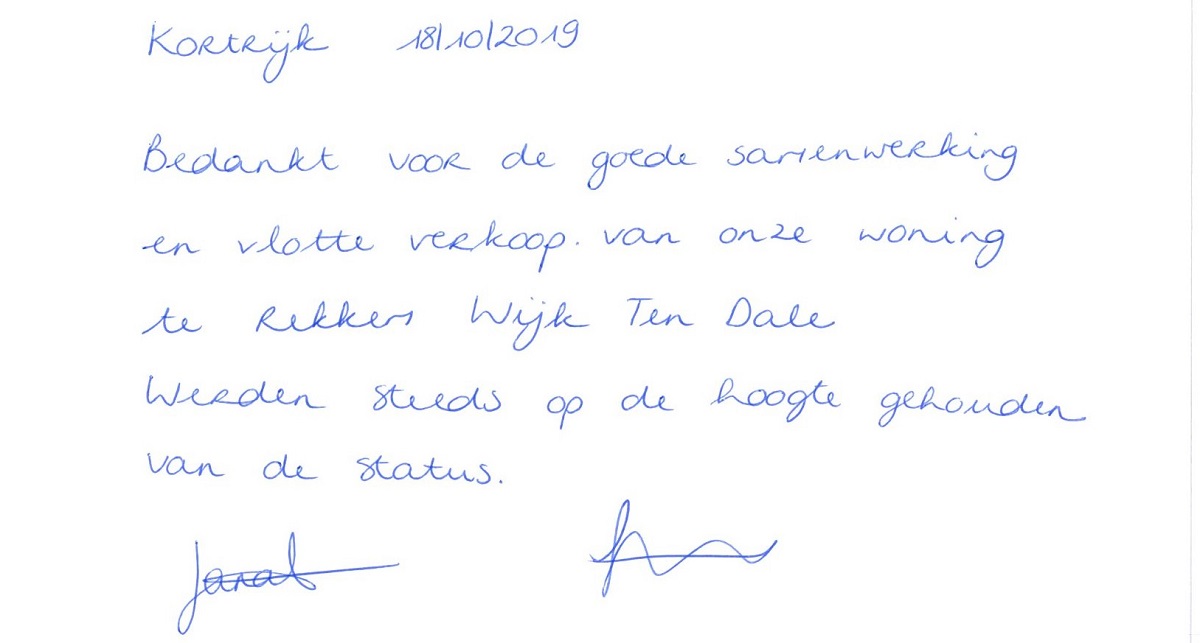 Kortrijk 18/10/2019
Bedankt voor de goede samenwerking
en vlotte verkoop. van onze woning
te Rekkem Wijk Ten Dale
Werden steeds op de hoogte gehouden
van de status.